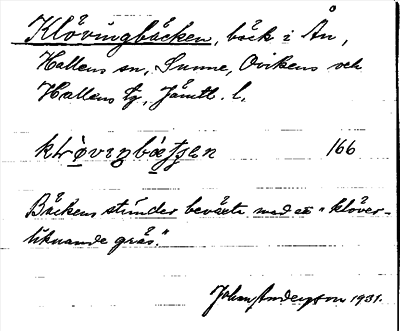 Klövingbäcken, bäck i Ån,
Hallens sn, Sunne, Ovikens och
Hallens tg, Jämtl. l.
166
Bäckens stränder beväxta med en "klöver-
liknande gräs."
John Anderson 1931.